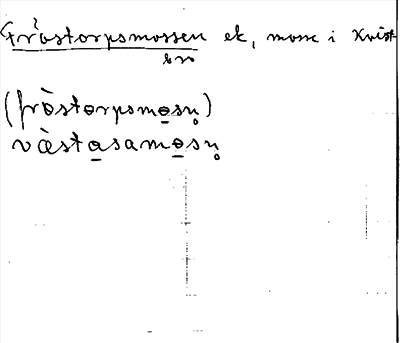 Fröstorpsmossen ek, mosse i Kvist-
br
(frὸ̀storpsmo̲sn̥)
væ̀sta̲samo̲sn̥